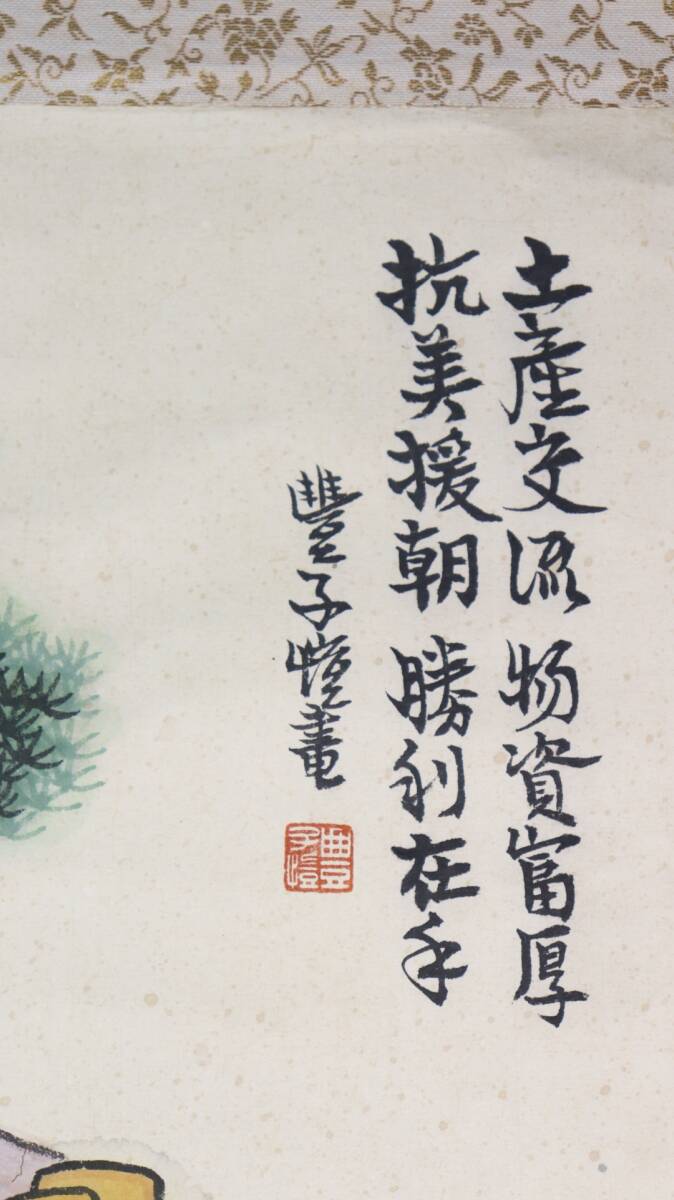 土產交流 物資富厚
抗美援朝 勝利在手
豐子愷畫
豐子愷